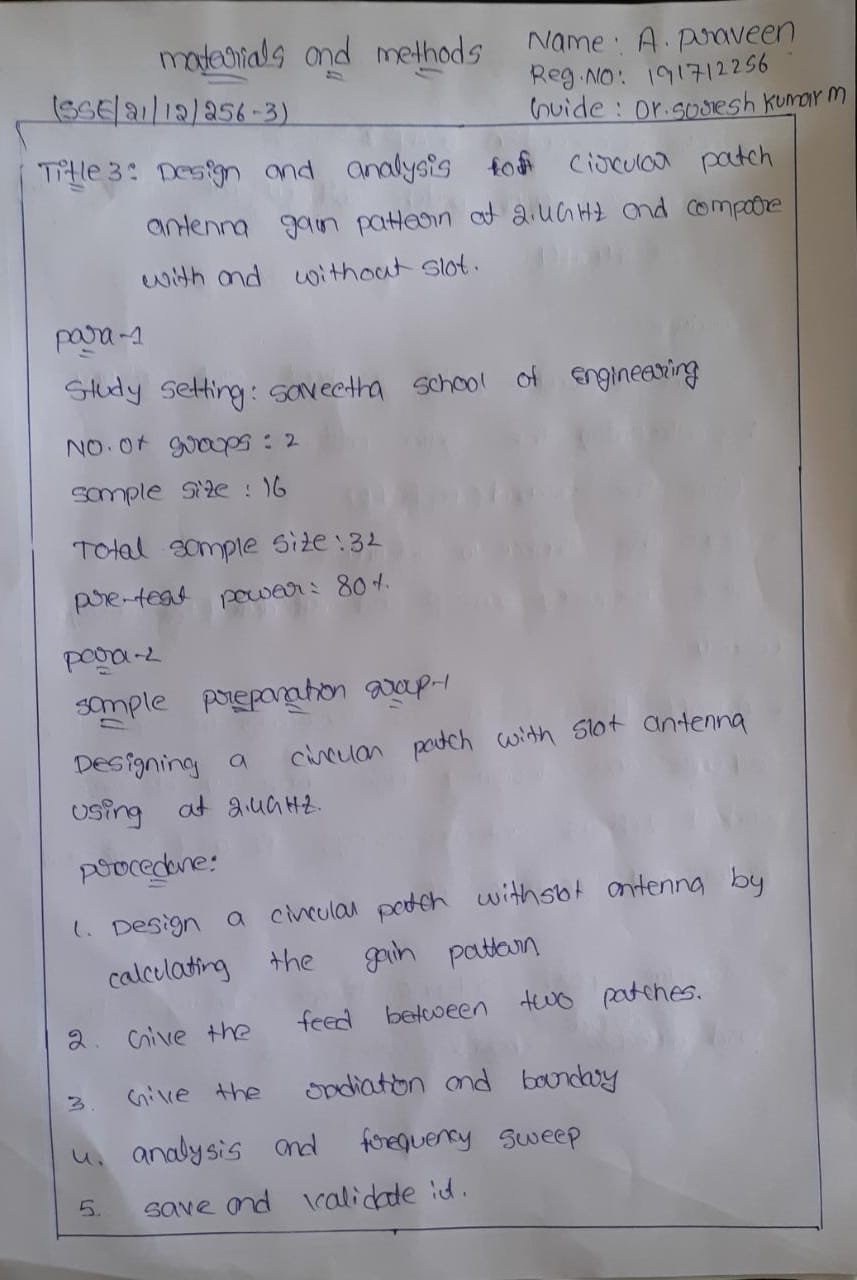 materials and methods
Name: A. praveen
Reg.No: 191712256
(SSE/21/12/256-3)
Guide: Dr. Suresh Kumar m
Title 3: Design and analysis for circular patch
antenna gain pattern at 2.4GHz and compare
with and without slot.
para-1
Study setting: saveetha school of Engineering
NO. of groups: 2
sample size: 16
Total sample size: 32
pre-test power: 80%.
para-2
sample preparation group-1
Designing a circular patch with slot antenna
using at 2.4GHz.
procedure:
1. Design a circular patch with slot antenna by
calculating the gain pattern
2. Give the feed between two patches.
3. Give the radiation and boundary
4. analysis and frequency sweep
5. save and validate it.